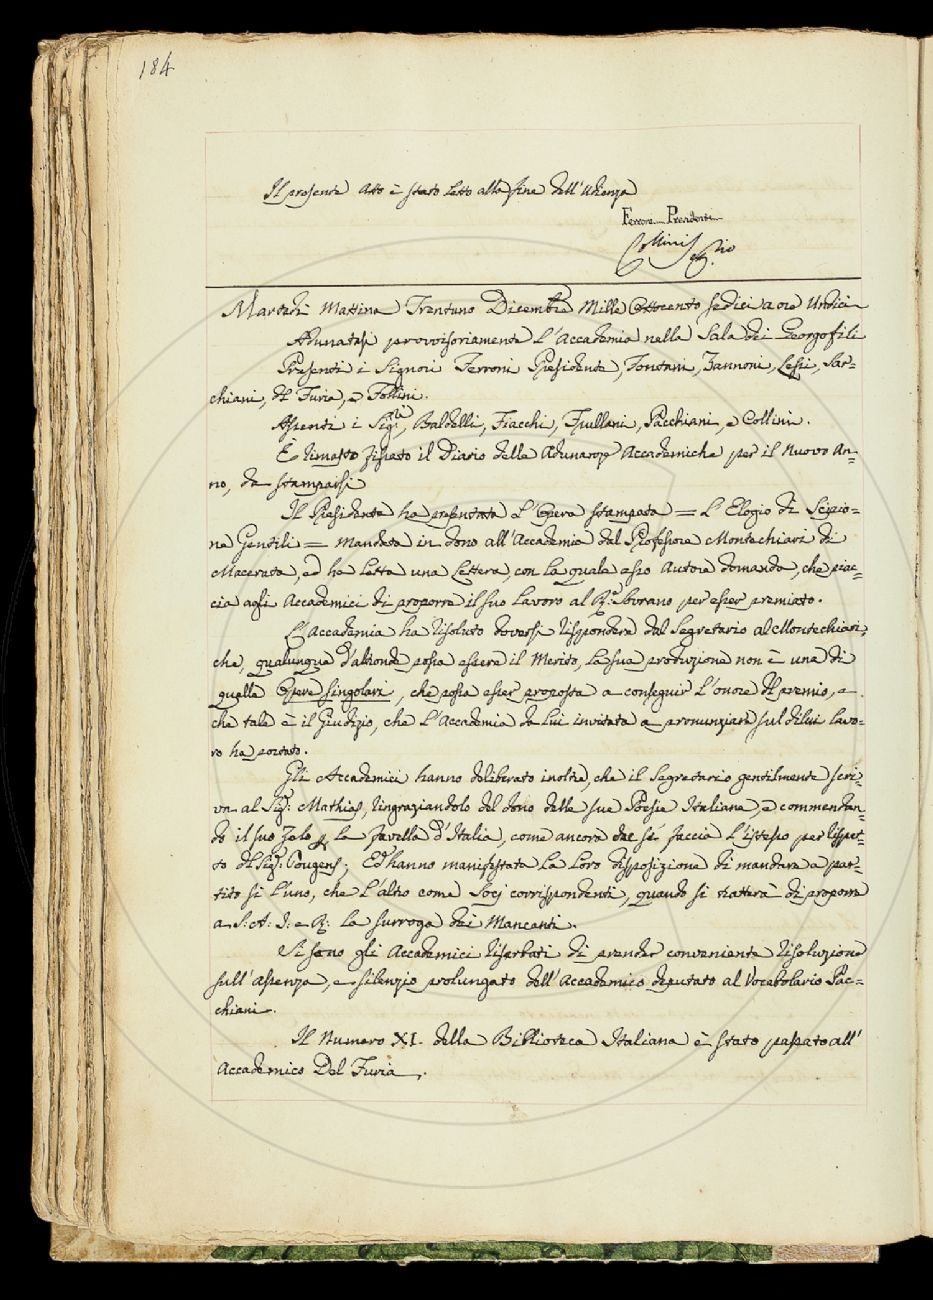 184
Il presente Atto è stato letto alla fine dell'Udienza
Ferroni Presidente
Collini Seg.rio
Martedì Mattina Trentuno Dicembre Mille Ottocento sedici a ore Undici
Adunatasi provvisoriamente L'Accademia nella Sala dei Georgofili
Presenti i Signori Ferroni Presidente, Fontani, Zannoni, Lessi, Sar=
chiani, del Furia, e Follini.
Assenti i Sig.ri, Baldelli, Fiacchi, Fiullani, Pacchiani, e Collini.
È rimasto fissato il Diario delle Adunanze Accademiche per il Nuovo An=
no, da stamparsi
Il Presidente ha presentata l'Opera stampata = L'Elogio di Scipio=
ne Gentili = mandata in dono all'Accademia dal Professore Montechiari di
Macerata, ed ha letta una Lettera, con la quale esso Autore domanda, che piac=
cia agli Accademici di proporre il suo Lavoro al R. Sovrano per esser premiato.
L'Accademia ha risoluto doversi rispondere dal Segretario al Montechiari,
che, qualunque d'altronde possa essere il Merito, la sua produzione non è una di
quelle Opere singolari, che possa esser proposta a conseguir L'onore del premio, e
che tale è il Giudizio, che L'Accademia da lui invitata a pronunziare sul di lui lavo=
ro ha portato.
Gli Accademici hanno deliberato inoltre, che il Segretario gentilmente scri=
va al Sig.: Mathias, ringraziandolo del dono delle sue Poesie Italiane, e commendan=
do il suo Zelo per la favella d'Italia, come ancora che se faccia L'istesso per rispet=
to del Sig. Pougens; Ed hanno manifestata la loro disposizione di mandare a par=
tito sì l'uno, che L'altro come Socj corrispondenti, quando si tratterà di proporre
a S: A: I: e R: la surroga dei Mancanti.
Si sono gli Accademici riserbati di prender conveniente risoluzione
sull'Assenza, e silenzio prolungato dell'Accademico deputato al Vocabolario Pac=
chiani.
Il Numero XI. della Biblioteca Italiana è stato passato all'
Accademico Del Furia.